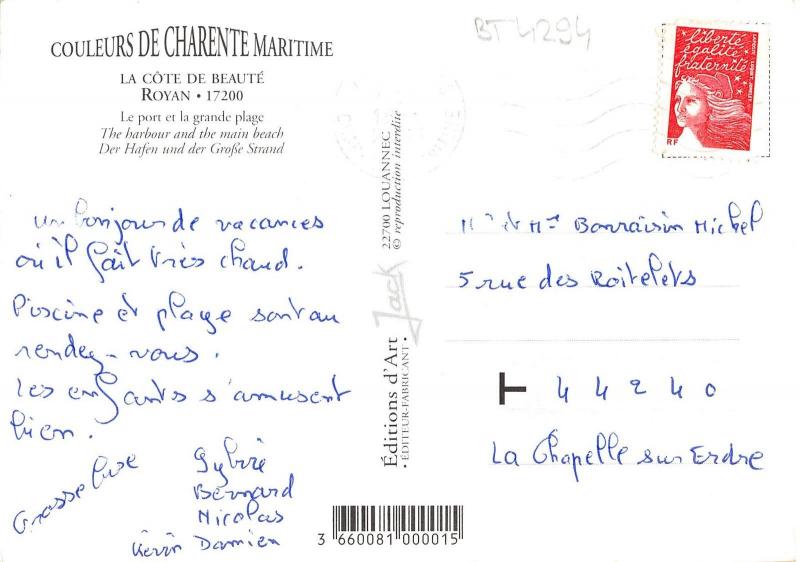 COULEURS DE CHARENTE MARITIME
LA CÔTE DE BEAUTÉ
ROYAN • 17200
Le port et la grande plage
The harbour and the main beach
Der Hafen und der Große Strand
un bonjour de vacances
où il fait très chaud.
Piscine et plage sont au
rendez-vous.
les enfants s'amusent
bien.
Grosse bise
Sylvie
Bernard
Nicolas
Kévin Damien
22700 LOUANNEC
© reproduction interdite
Jack
Éditions d'Art
• ÉDITEUR-FABRICANT •
3 660081 000015
BT4294
liberté
égalité
fraternité
RF
Mr et Mme Michel
5 rue des Roitelets
T 44240
La Chapelle sur Erdre